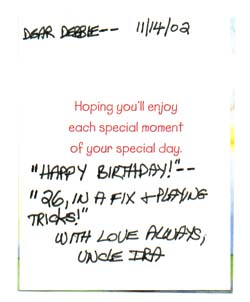 DEAR DEBBIE-- 11/14/02
Hoping you'll enjoy
each special moment
of your special day.
"HAPPY BIRTHDAY!"--
"26, IN A FIX + PLAYING
TRICKS!"
WITH LOVE ALWAYS,
UNCLE IRA